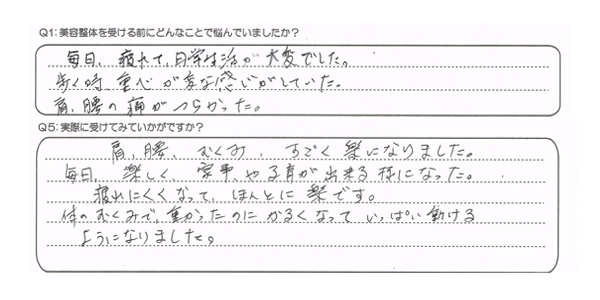 Q1：美容整体を受ける前にどんなことで悩んでいましたか？
毎日、疲れて、日常生活が大変でした。
歩く時、重心が変な感じがしていた。
肩、腰の痛がつらかった。
Q5：実際に受けてみていかがですか？
肩、腰、むくみ、すごく楽になりました。
毎日、楽しく、家事、や子育が出来る様になった。
疲れにくくなって、ほんとに楽です。
体のむくみで、重かったのにかるくなっていっぱい動ける
ようになりました。